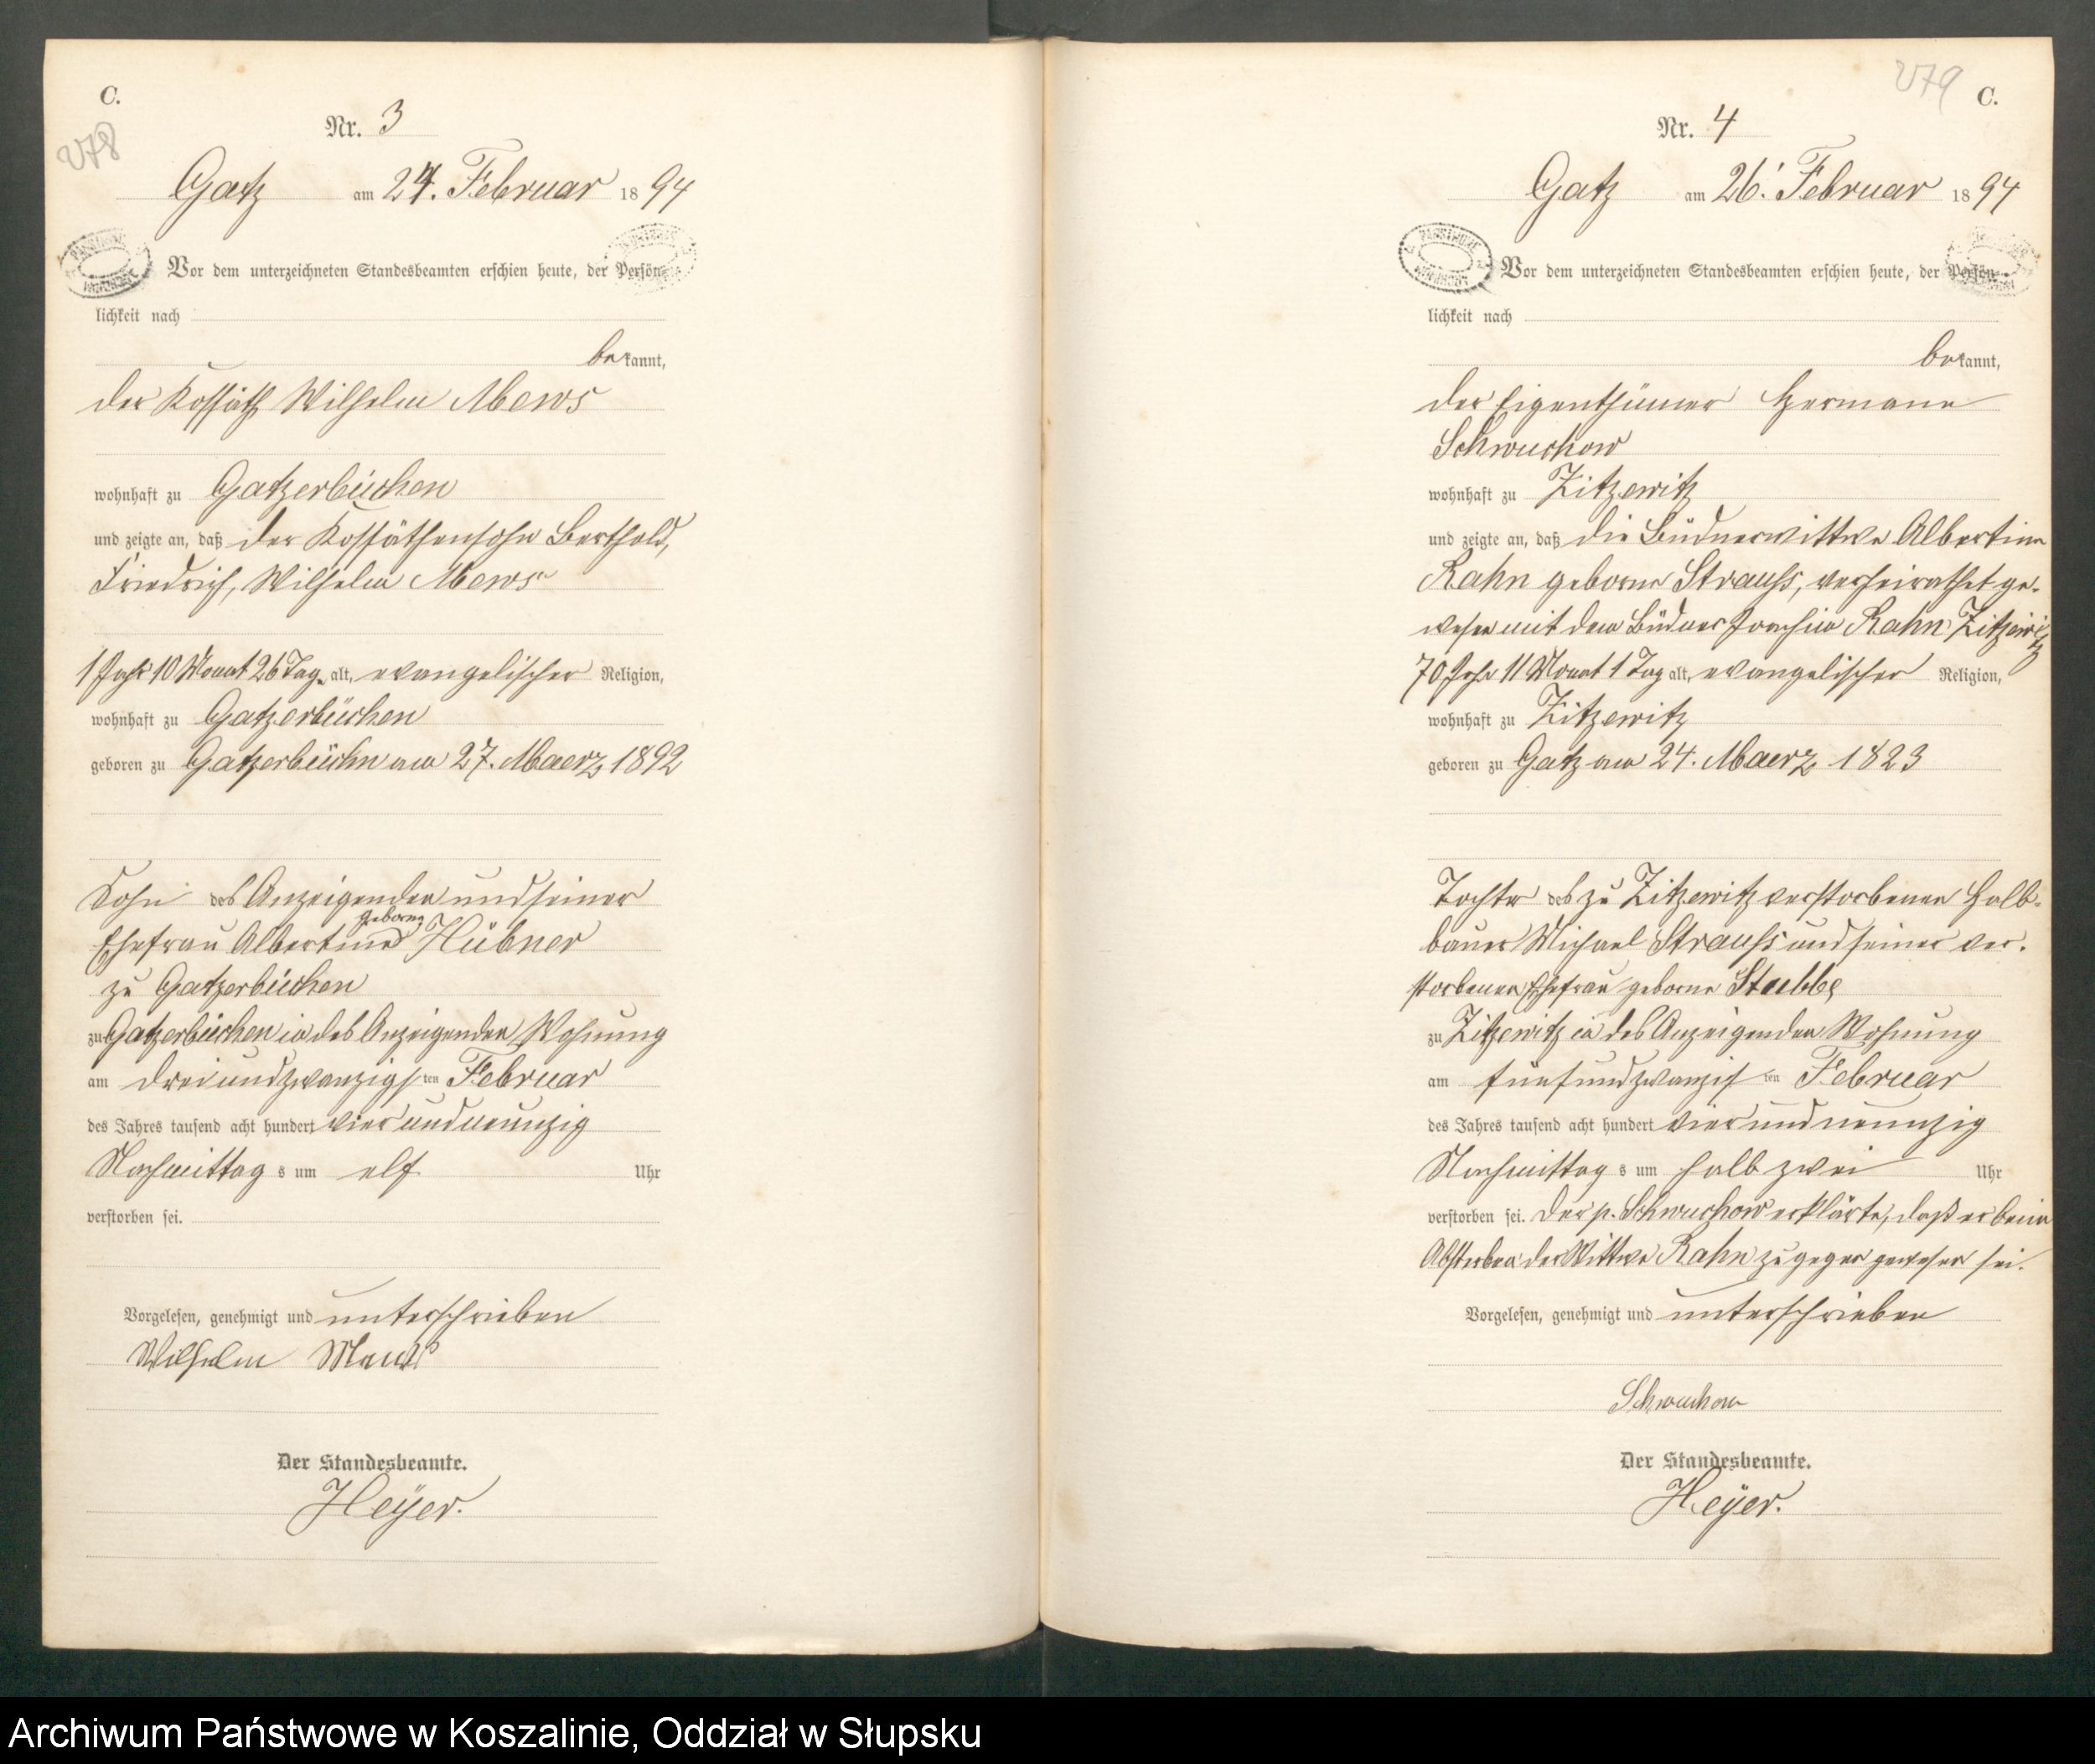 C.
278
Nr. 3
Gatz am 24. Februar 1894
Vor dem unterzeichneten Standesbeamten erschien heute, der Persön-
lichkeit nach
bekannt,
der Kossäth Wilhelm Mews
wohnhaft zu Gatzerbüchen
und zeigte an, daß der Kossäthensohn Berthold,
Friedrich, Wilhelm Mews
1 Jahr 10 Monat 26 Tage alt, evangelischer Religion,
wohnhaft zu Gatzerbüchen
geboren zu Gatzerbüchen am 27. Maerz 1892
Sohn des Anzeigenden und seiner
Ehefrau Albertine geborene Hübner
zu Gatzerbüchen
zu Gatzerbüchen in des Anzeigenden Wohnung
am dreiundzwanzigsten Februar
des Jahres tausend acht hundert vierundneunzig
Nachmittags um elf Uhr
verstorben sei.
Vorgelesen, genehmigt und unterschrieben
Wilhelm Mews
Der Standesbeamte.
Heÿer.
279
C.
Nr. 4
Gatz am 26. Februar 1894
Vor dem unterzeichneten Standesbeamten erschien heute, der Persön-
lichkeit nach
bekannt,
der Eigenthümer Hermann
Schwuchow
wohnhaft zu Zitzewitz
und zeigte an, daß die Büdnerwittwe Albertine
Rahn geborne Strauhs, verheirathet ge-
wesen mit dem Büdner Joachim Rahn Zitzewitz
70 Jahr 11 Monat 1 Tag alt, evangelischer Religion,
wohnhaft zu Zitzewitz
geboren zu Gatz am 24. Maerz 1823
Tochter des zu Zitzewitz verstorbenen Halb-
bauer Michael Strauhs und seiner ver-
storbenen Ehefrau geborne Stubbe
zu Zitzewitz in des Anzeigenden Wohnung
am fünfundzwanzigsten Februar
des Jahres tausend acht hundert vierundneunzig
Nachmittags um halb zwei Uhr
verstorben sei. Der p. Schwuchow erklärte, daß er beim
Absterben der Wittwe Rahn zugegen gewesen sei.
Vorgelesen, genehmigt und unterschrieben
Schwuchow
Der Standesbeamte.
Heÿer.
Archiwum Państwowe w Koszalinie, Oddział w Słupsku